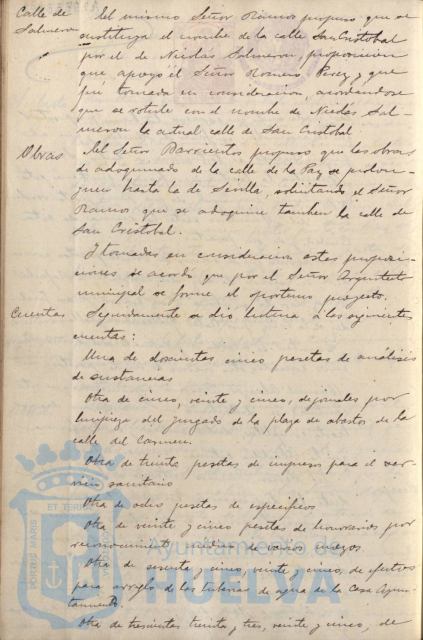 Calle de
Salmeron
El mismo Señor Ramos propuso que se
sustituya el nombre de la calle San Cristobal
por el de Nicolás Salmeron, proposicion
que apoyó el Señor Romero Perez y que
fué tomada en consideracion, acordandose
que se rotule con el nombre de Nicolás Sal-
meron la actual calle de San Cristobal
Obras
El Señor Barrientos propuso que las obras
de adoquinado de la calle de la Paz se prolon-
guen hasta la de Sevilla, solicitando el Señor
Ramos que se adoquine tambien la calle de
San Cristobal.
Y tomadas en consideracion estas proposi-
ciones se acordó que por el Señor Arquitecto
municipal se forme el oportuno proyecto.
Cuentas
Seguidamente se dio lectura a las siguientes
cuentas:
Una de doscientas cinco pesetas de análisis
de sustancias
Otra de cinco, veinte y cinco, de jornales por
limpieza del juzgado de la plaza de abastos de la
calle del Carmen.
Otra de treinta pesetas de impresos para el ser-
vicio sanitario
Otra de ocho pesetas de especificos
Otra de veinte y cinco pesetas de honorarios por
reconocimientos de varios
Otra de sesenta y cinco, veinte y cinco, de efectos
para arreglo de las tuberias de agua de la Casa Ayun-
tamiento.
Otra de trescientas treinta y tres, veinte y cinco, de
PORTUS MARIS
ET TERRAE
Ayuntamiento de
HUELVA